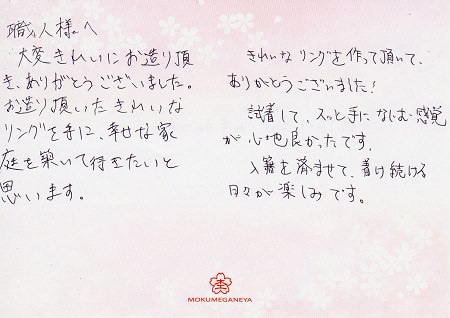 職人様へ
大変きれいにお造り頂
き、ありがとうございました。
お造り頂いたきれいな
リングを手に、幸せな家
庭を築いて行きたいと
思います。
きれいなリングを作って頂いて、
ありがとうございました!
試着して、スッと手になじむ感覚
が心地良かったです。
入籍を済ませて、着け続ける
日々が楽しみです。
MOKUMEGANEYA